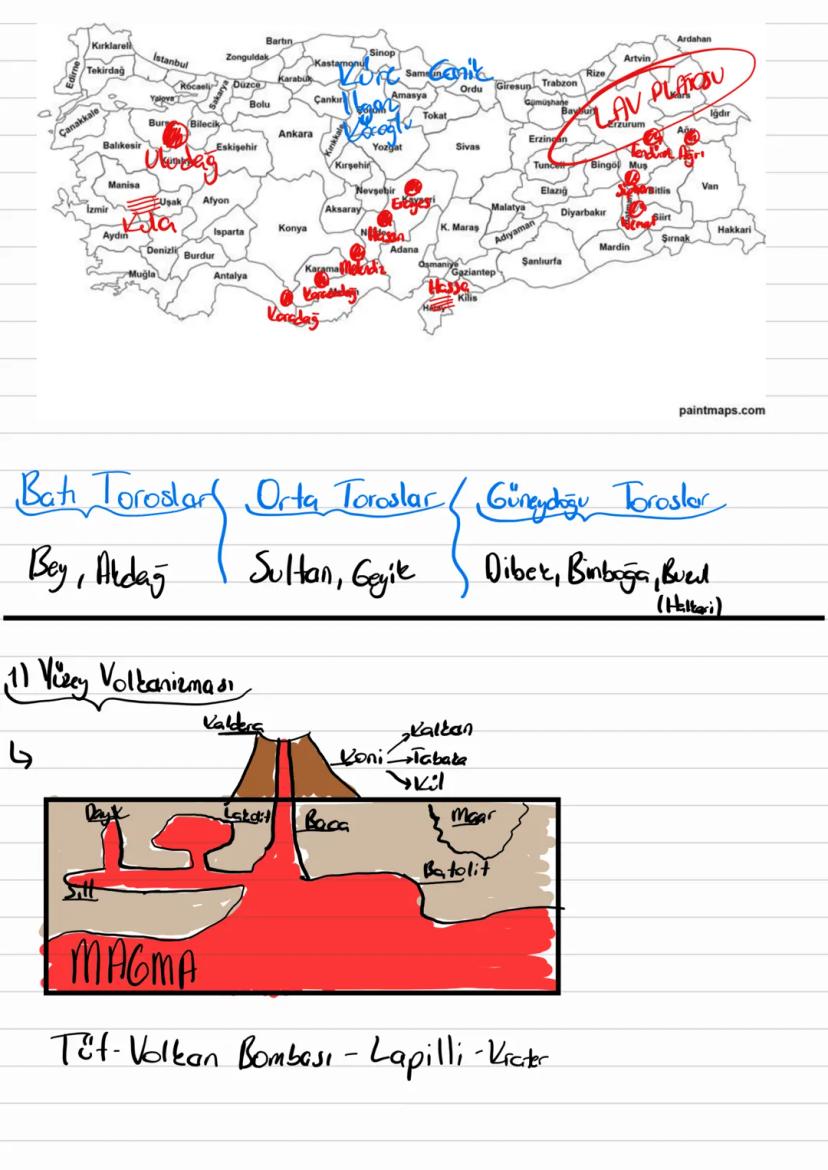 Ardahan
Bartın
Kırklareli
Sinop
Artvin
İstanbul
Zonguldak
Kastamonu
Edirne
Tekirdağ
Karabük
Samsun
Rize
Kocaeli
Düzce
Küre Canik
Ordu
Giresun
Trabzon
LAV PLATOSU
Kars
Yalova
Sakarya
Bolu
Çankırı
Ilgaz
Çorum
Amasya
Gümüşhane
Bayburt
Çanakkale
Bursa
Bilecik
Ankara
Kırıkkale
Köroğlu
Tokat
Erzurum
Iğdır
Balıkesir
Kütahya
Uludağ
Eskişehir
Yozgat
Sivas
Erzincan
Ağrı
Tendürek
Ağrı
Kırşehir
Tunceli
Bingöl
Muş
Manisa
Uşak
Afyon
Nevşehir
Kayseri
Erciyes
Elazığ
Süphan
Bitlis
Van
İzmir
Kula
Aksaray
Malatya
Diyarbakır
Batman
Nemrut
Siirt
Aydın
Isparta
Konya
Niğde
Hasan
K. Maraş
Adıyaman
Şırnak
Hakkari
Denizli
Burdur
Adana
Mardin
Muğla
Antalya
Karaman
Melendiz
Osmaniye
Gaziantep
Şanlıurfa
Karacadağ
Hassa
Kilis
Hatay
Karadağ
paintmaps.com
Batı Toroslar
Orta Toroslar
Güneydoğu Toroslar
Bey, Akdağ
Sultan, Geyik
Dibek, Binboğa, Buzul
(Hakkari)
1) Yüzey Volkanizması
Kaldera
Kalkan
Koni
Tabaka
Kül
Dayk
Lakolit
Baca
Maar
Batolit
Sill
MAGMA
Tüf - Volkan Bombası - Lapilli - Krater